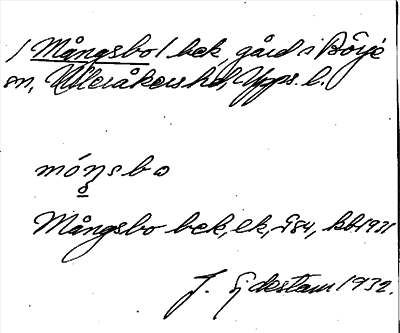 / Mångsbo / bek. gård i Börje
sn, Ulleråkers hd, Upps. l.
mónsbo
Mångsbo bek, ek, J84, kb 1931
J. Ejdestam 1932.